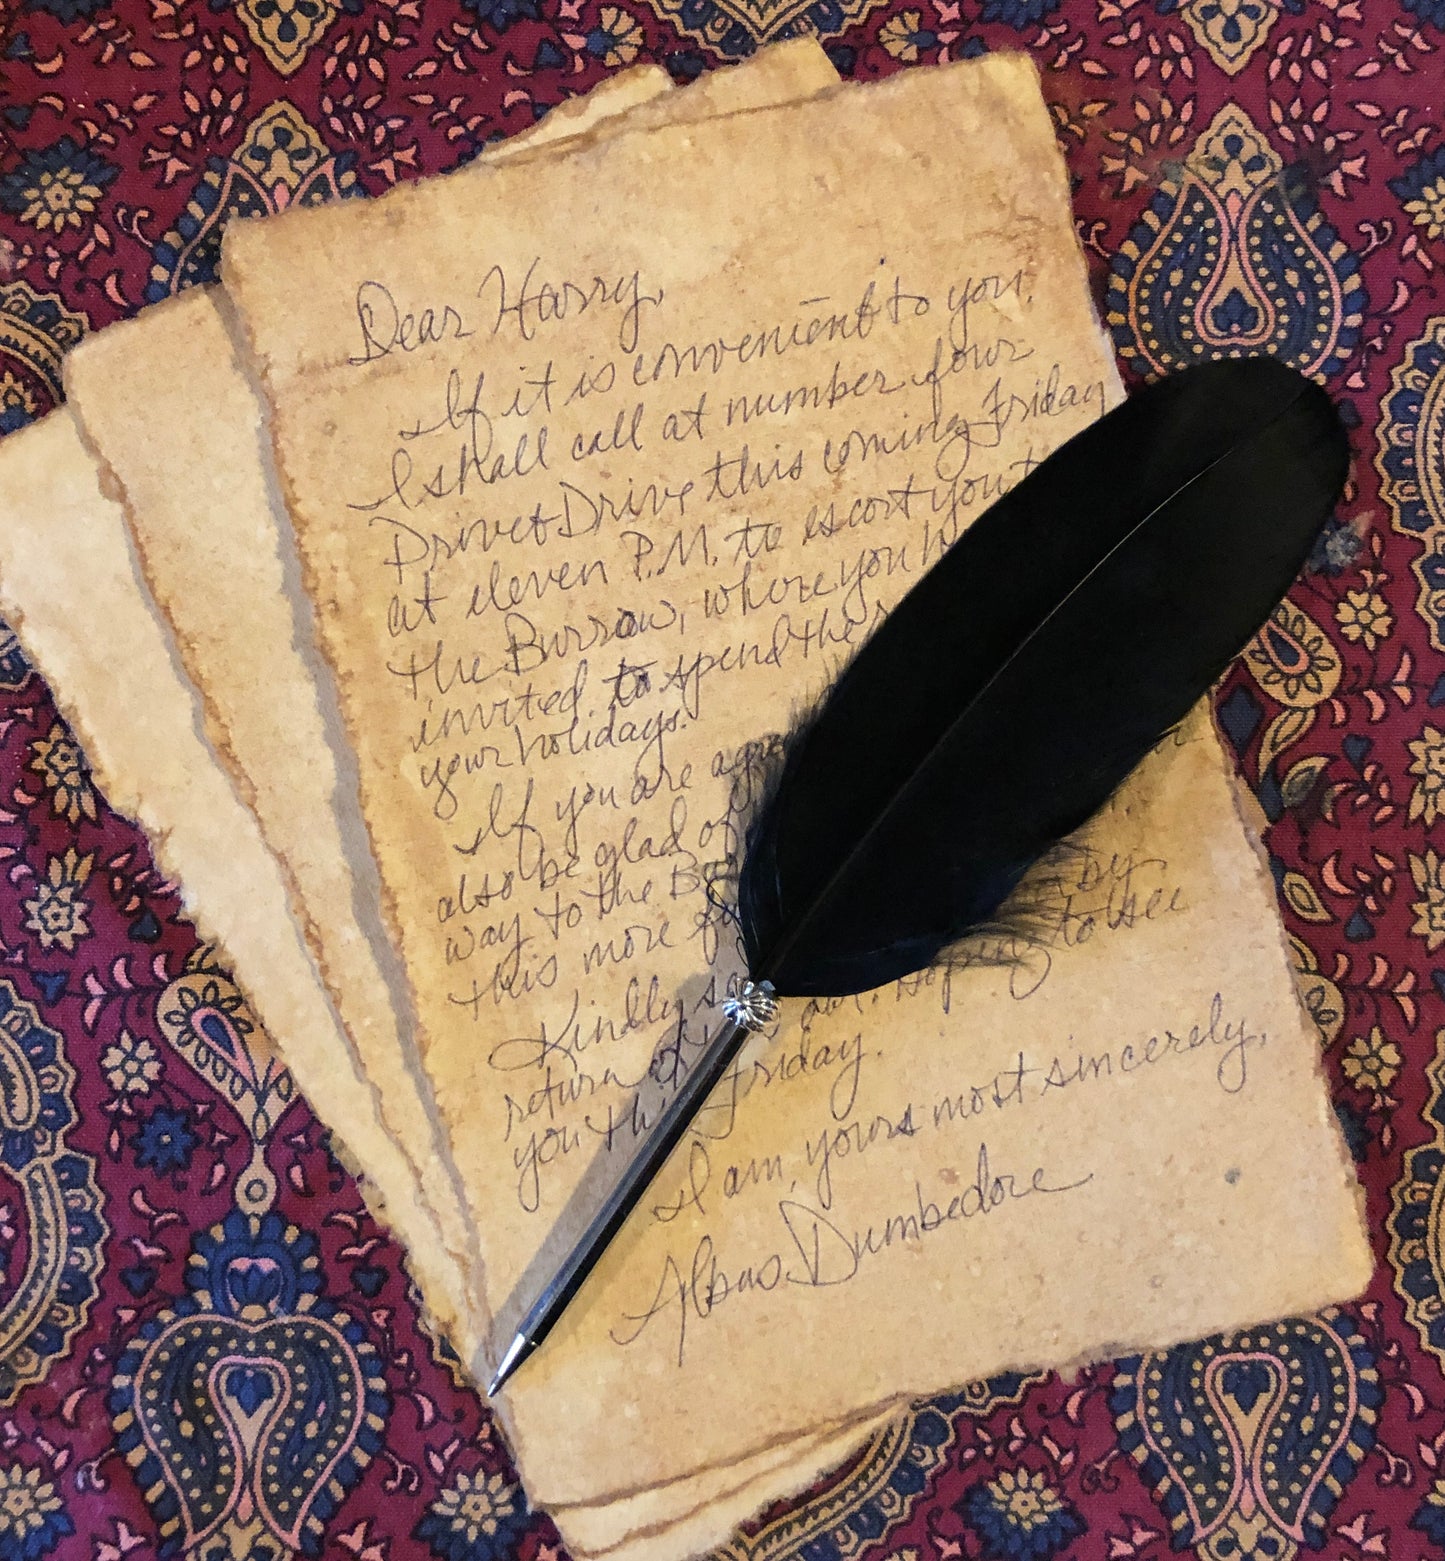 Dear Harry,
If it is convenient to you.
I shall call at number four
Privet Drive this coming Friday
at eleven P.M. to escort you t
the Burrow, where you h
invited to spend the r
your holidays.
If you are agre
also be glad of
way to the B
this more fu
Kindly s by
return of owl. Hoping to see
you this Friday.
I am, yours most sincerely,
Albus Dumbedore